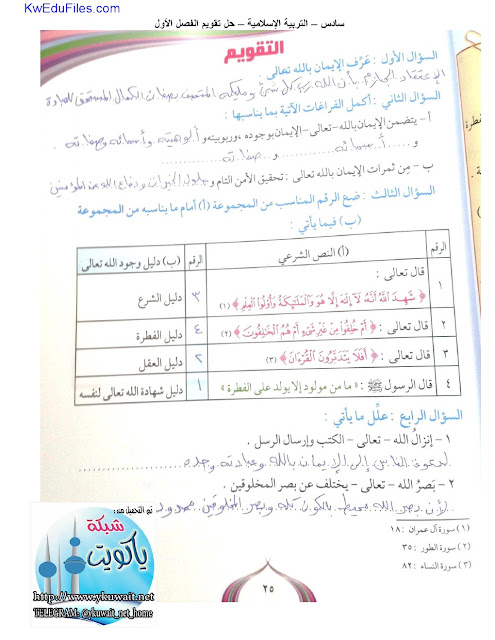 KwEduFiles.com
سادس – التربية الإسلامية – حل تقويم الفصل الأول
التقويم
السؤال الأول : عَرِّف الإيمان بالله تعالى.
الاعتقاد الجازم بأن الله رب كل شيء ومليكه المتصف بصفات الكمال المستحق للعبادة
السؤال الثاني : أكمل الفراغات الآتية بما يناسبها :
أ – يتضمن الإيمان بالله – تعالى – الإيمان بوجوده وربوبيته و ألوهيته وأسمائه وصفاته .
و أسمائه و صفاته
ب – مِن ثمرات الإيمان بالله تعالى : تحقيق الأمن التام و حلول الخيرات ودفاع الله عن المؤمنين
السؤال الثالث : ضع الرقم المناسب من المجموعة (أ) أمام ما يناسبه من المجموعة
(ب) فيما يأتي :
الرقم (أ) النص الشرعي الرقم (ب) دليل وجود الله تعالى
١ قال تعالى :
﴿ شَهِدَ اللَّهُ أَنَّهُ لَا إِلَٰهَ إِلَّا هُوَ وَالْمَلَائِكَةُ وَأُولُوا الْعِلْمِ ﴾ (١) ٣ دليل الشرع
٢ قال تعالى : ﴿ أَمْ خُلِقُوا مِنْ غَيْرِ شَيْءٍ أَمْ هُمُ الْخَالِقُونَ ﴾ (٢) ٤ دليل الفطرة
٣ قال تعالى : ﴿ أَفَلَا يَتَدَبَّرُونَ الْقُرْآنَ ﴾ (٣) ٢ دليل العقل
٤ قال الرسول ﷺ : « ما من مولود إلا يولد على الفطرة » ١ دليل شهادة الله تعالى لنفسه
السؤال الرابع : علّل ما يأتي :
١ – إنزالُ الله – تعالى – الكتب وإرسال الرسل .
لدعوة الناس إلى الإيمان بالله وعبادته وحده
٢ – بَصَرُ الله – تعالى – يختلف عن بصر المخلوقين .
لأن بصر الله محيط بالكون كله وبصر المخلوقين محدود
(١) سورة آل عمران : ١٨
(٢) سورة الطور : ٣٥
(٣) سورة النساء : ٨٢
٢٥
تم التحميل من:
شبكة
ياكويت
www.ykuwait.net
TELEGRAM: @ykuwait_net_home